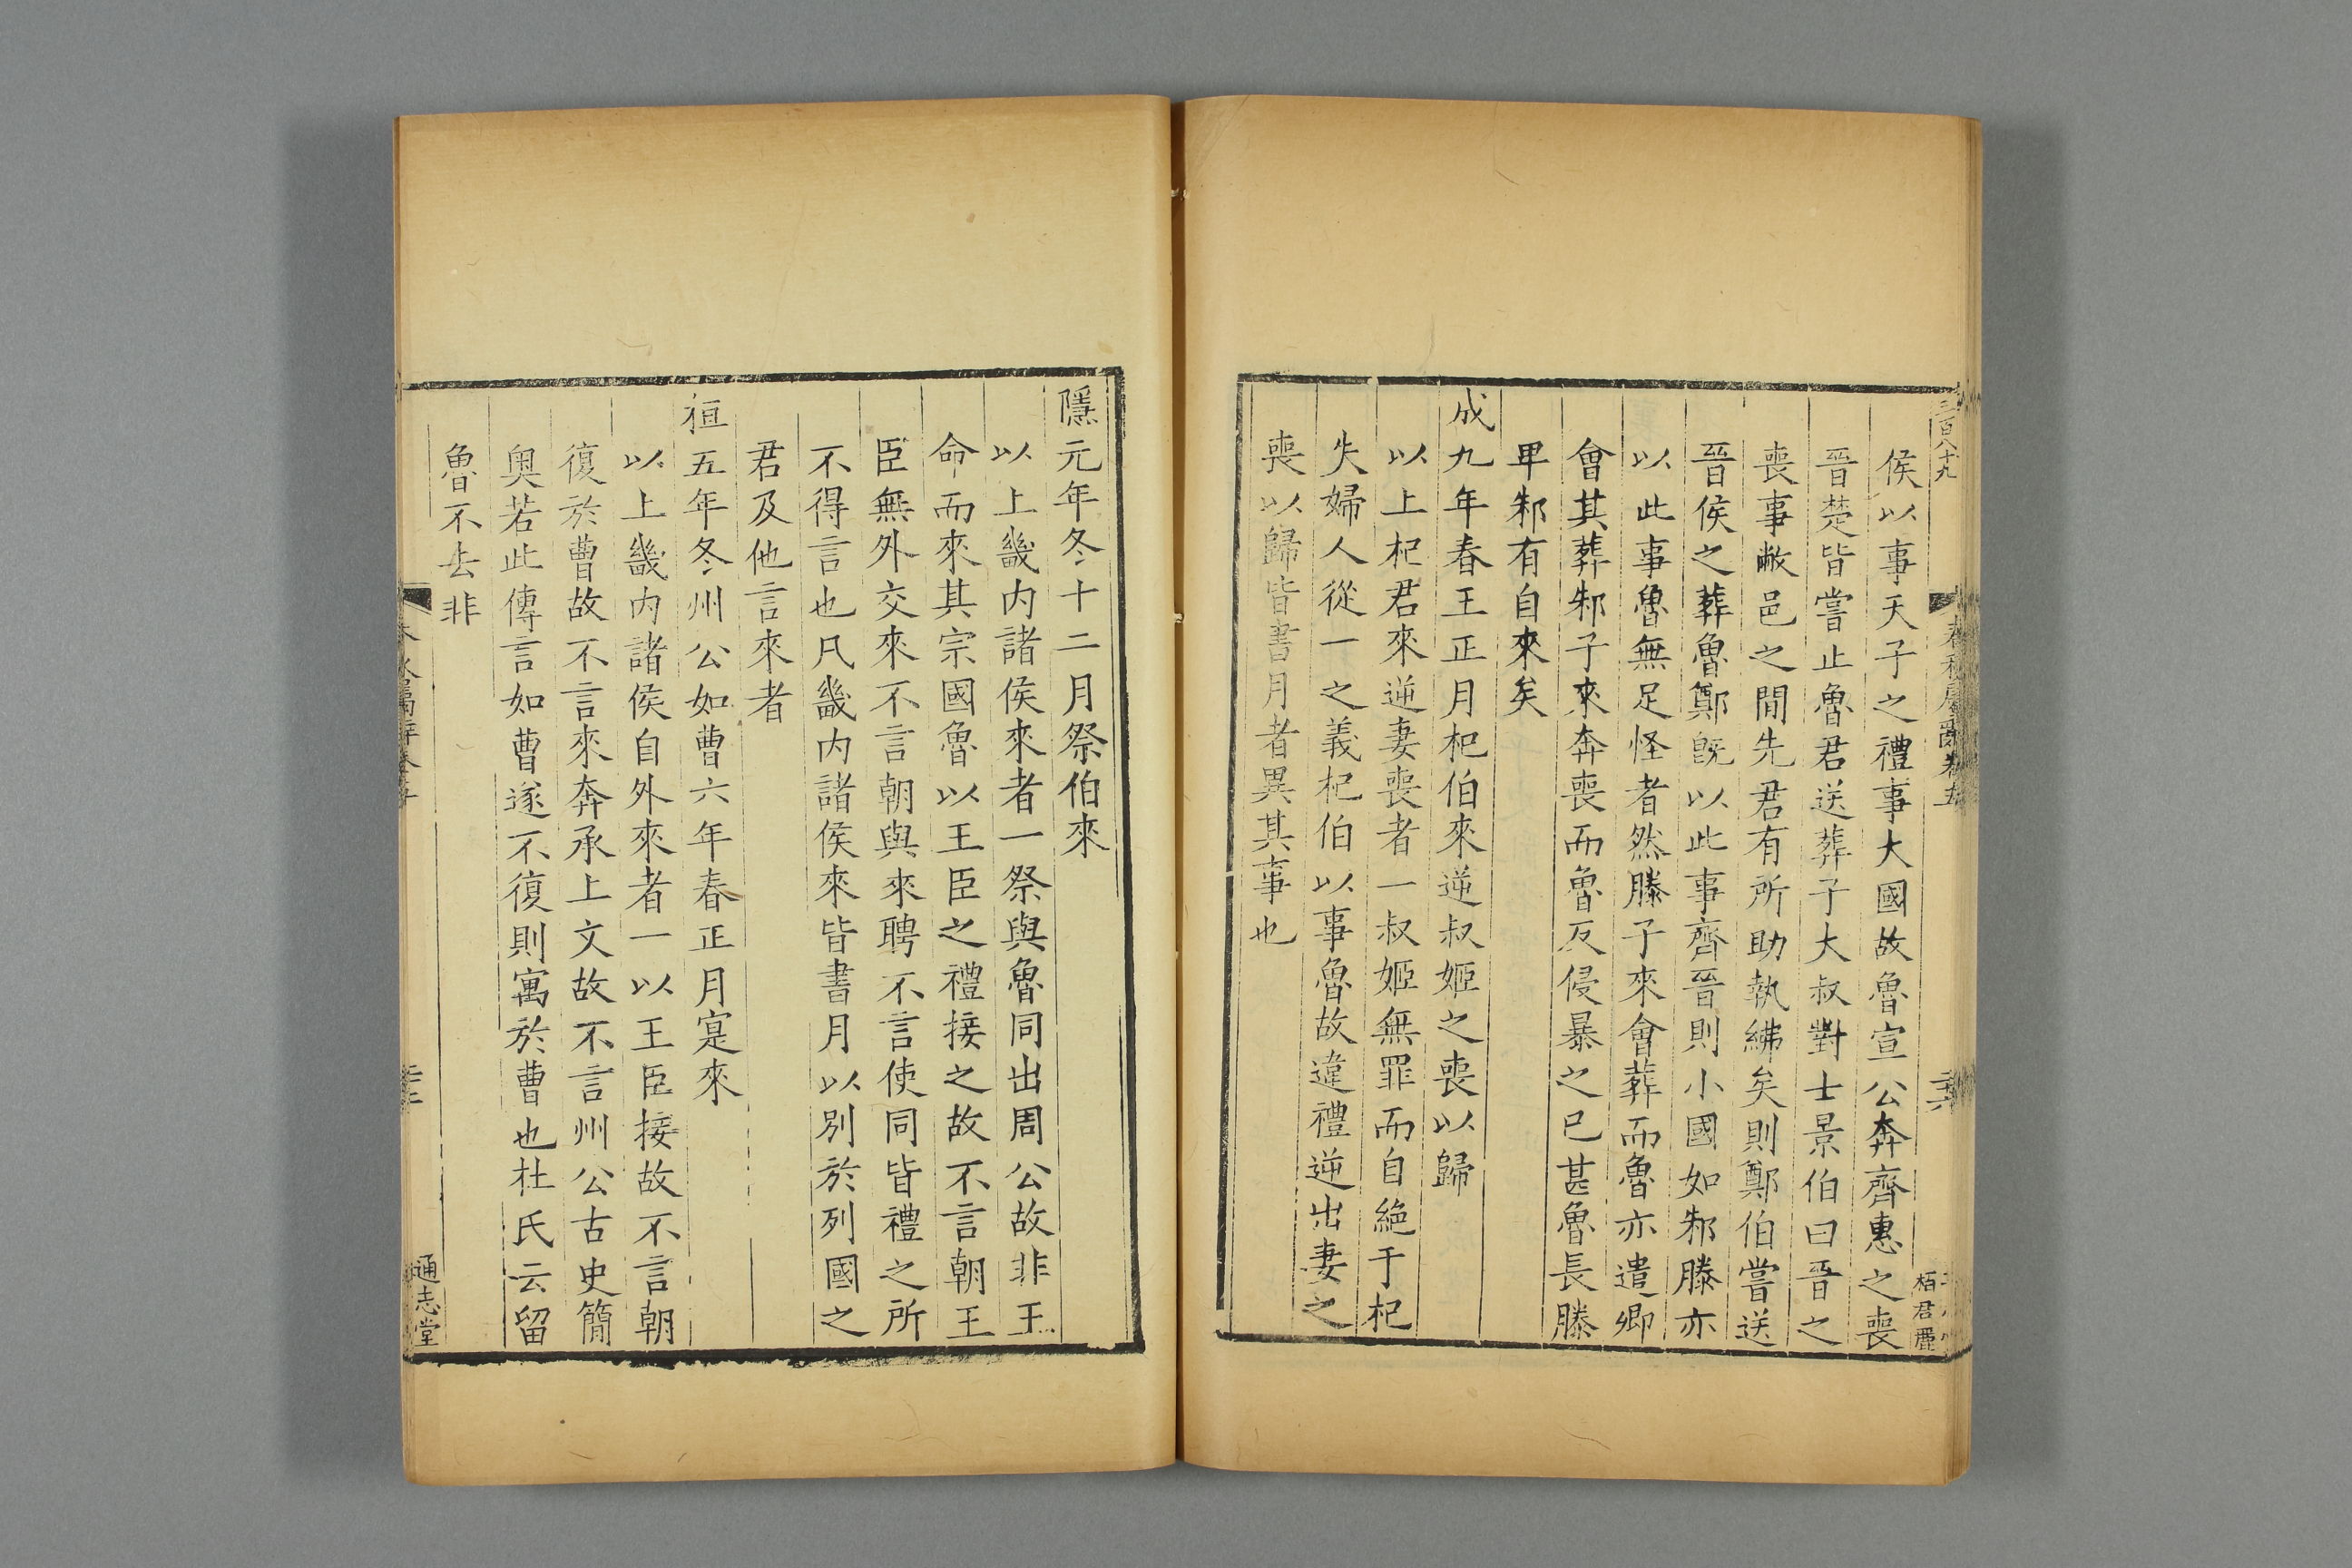 三百八十九
春秋屬辭卷五
侯以事天子之禮事大國故魯宣公奔齊惠之喪
晉楚皆嘗止魯君送葬子大叔對士景伯曰晉之
喪事敝邑之間先君有所助執紼矣則鄭伯嘗送
晉侯之葬魯鄭旣以此事齊晉則小國如邾滕亦
以此事魯無足怪者然滕子來會葬而魯亦遣卿
會其葬邾子來奔喪而魯反侵暴之已甚魯長滕
卑邾有自來矣
成九年春王正月杞伯來逆叔姬之喪以歸
以上杞君來逆妻喪者一叔姬無罪而自絕于杞
失婦人從一之義杞伯以事魯故違禮逆出妻之
喪以歸皆書月者異其事也
隱元年冬十二月祭伯來
以上畿内諸侯來者一祭與魯同出周公故非王
命而來其宗國魯以王臣之禮接之故不言朝王
臣無外交來不言朝與來聘不言使同皆禮之所
不得言也凡畿内諸侯來皆書月以別於列國之
君及他言來者
桓五年冬州公如曹六年春正月寔來
以上畿内諸侯自外來者一以王臣接故不言朝
復於曹故不言來奔承上文故不言州公古史簡
奥若此傳言如曹遂不復則寓於曹也杜氏云留
魯不去非
通志堂